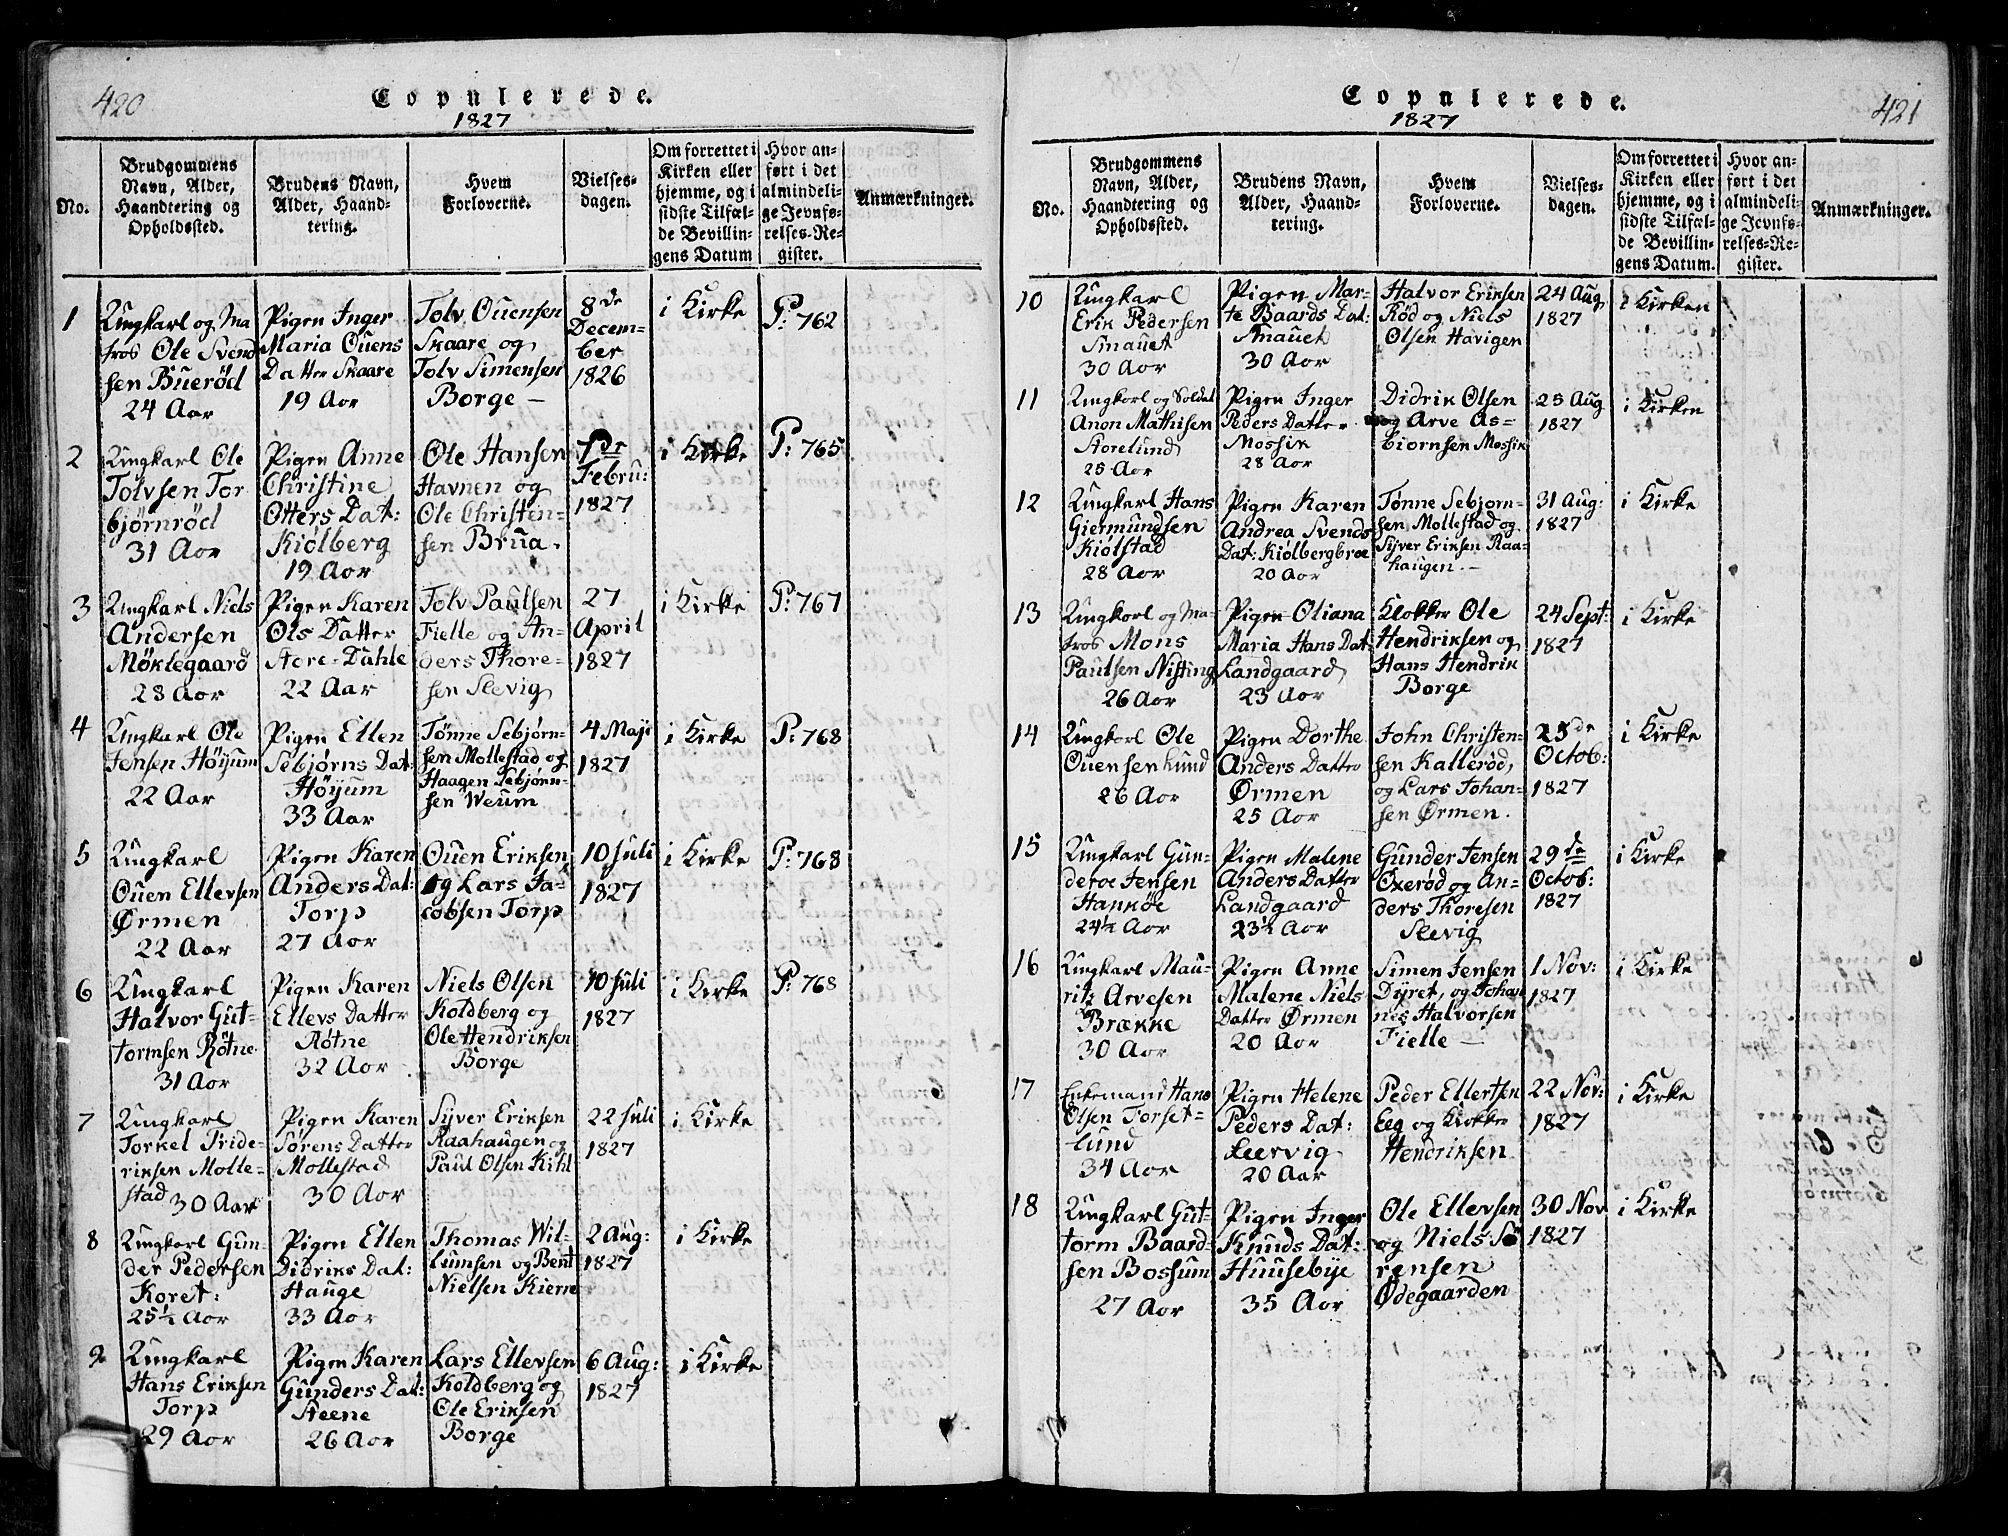 420
Copulerede.
1827
No.
Brudgommens
Navn, Alder,
Haandtering og
Opholdssted.
Brudens Navn,
Alder, Haand-
tering.
Hvem
Forloverne.
Vielses-
dagen.
Om forrettet i
Kirken eller
hjemme, og i
sidste Tilfæl-
de Bevillin-
gens Datum
Hvor an-
ført i det
almindeli-
ge Jevnfø-
relses-Re-
gister.
Anmærkninger.
1
Ungkarl og Ma
tros Ole Svend
sen Buerød
24 Aar
Pigen Inger
Maria Ouens
Datter Skaare
19 Aar
Tolv Ouensen
Skaare og
Tolv Simensen
Borge —
8de
Decem-
ber
1826
i Kirke
P: 762
2
Ungkarl Ole
Tolvsen Tor
bjørnrød
31 Aar
Pigen Anne
Christine
Otters Dat:
Kiølberg
19 Aar
Ole Hansen
Havnen og
Ole Christen-
sen Brua.
Febru:
1827
i Kirke
P: 765
3
Ungkarl Niels
Andersen
Møklegaard
28 Aar
Pigen Karen
Ols Datter
Store-Dahle
22 Aar
Tolv Paulsen
Fielle og An-
ders Thore-
sen Slevig
27
April
1827
i Kirke
P: 767
4
Ungkarl Ole
Jensen Høyum
22 Aar
Pigen Ellen
Sebjørns Dat:
Høyum
33 Aar
Tønne Sebjørn-
sen Mollestad og
Haagen Sebjørn-
sen Weum
4 Maji
1827
i Kirke
P: 768
5
Ungkarl
Ouen Ellevsen
Ørmen
22 Aar
Pigen Karen
Anders Dat:
Torp
27 Aar
Ouen Eriksen
og Lars Ja-
cobsen Torp
10 Juli
1827
i Kirke
P: 768
6
Ungkarl
Halvor Gut-
tormsen Røtne
31 Aar
Pigen Karen
Ellevs Datter
Røtne
32 Aar
Niels Olsen
Koldberg og
Ole Hendriksen
Borge
10 Juli
1827
i Kirke
P: 768
7
Ungkarl
Torkel Fride-
riksen Molle-
stad 30 Aar
Pigen Karen
Sørens Datter
Mollestad
30 Aar
Syver Eriksen
Raahaugen og
Paul Olsen Kihl
22 Juli
1827
i Kirke
8
Ungkarl Gun-
der Pedersen
Koret:
25½ Aar
Pigen Ellen
Didriks Dat:
Hauge
33 Aar
Thomas Wil-
lumsen og Bent
Nielsen Kierre
2 Aug:
1827
i Kirke
9
Ungkarl
Hans Eriksen
Torp
29 Aar
Pigen Karen
Gunders Dat:
Steene
26 Aar
Lars Ellevsen
Koldberg og
Ole Eriksen
Borge
6 Aug:
1827
i Kirke
421
Copulerede.
1827
No.
Brudgommens
Navn, Alder,
Haandtering og
Opholdssted.
Brudens Navn,
Alder, Haand-
tering.
Hvem
Forloverne.
Vielses-
dagen.
Om forrettet i
Kirken eller
hjemme, og i
sidste Tilfæl-
de Bevillin-
gens Datum.
Hvor an-
ført i det
almindeli-
ge Jevnfø-
relses-Re-
gister.
Anmærkninger.
10
Ungkarl
Erik Pedersen
Smauet
30 Aar
Pigen Mar-
te Baards Dat:
Smauet
30 Aar
Halvor Eriksen
Rød og Niels
Olsen Havigen
24 Aug
1827
i Kirken
11
Ungkarl og Soldat
Anon Mathisen
Storelund
25 Aar
Pigen Inger
Peders Datter
Mossik
28 Aar
Didrik Olsen
og Arve As-
biornsen Mossik
25 Aug
1827
i Kirken
12
Ungkarl Hans
Giermundsen
Kiølstad
28 Aar
Pigen Karen
Andrea Svends
Dat: Kiølbergbroe
20 Aar
Tønne Sebjorn-
sen Mollestad og
Syver Eriksen Raa-
haugen.—
31 Aug:
1827
i Kirke
13
Ungkarl og Ma-
tros Mons
Paulsen Nisting
26 Aar
Pigen Oliana
Maria Hans Dat
Landgaard
23 Aar
Klokker Ole
Hendriksen og
Hans Hendrik
Borge
24 Sept:
1827
i Kirke
14
Ungkarl Ole
Ouensen Lund
26 Aar
Pigen Dorthe
Anders Datter
Ørmen
25 Aar
John Christen-
sen Kallerød,
og Lars Johan-
sen Ørmen.
25de
Octob:
1827
i Kirke
15
Ungkarl Gun-
deroe Jensen
Hankøe
24½ Aar
Pigen Malene
Anders Datter
Landgaard
23½ Aar
Gunder Jensen
Oxerød og An-
ders Thoresen
Slevig
29de
Octob:
1827
i Kirke
16
Ungkarl Mau-
ritz Arvesen
Brække
30 Aar
Pigen Anne
Malene Niels
Datter Ørmen
20 Aar
Simen Jensen
Dyret, og Johan
nes Halvorsen
Fielle —
1 Nov:
1827
i Kirke
17
Enkemand Hans
Olsen Torset-
lund
34 Aar
Pigen Helene
Peders Dat:
Leervig
20 Aar
Peder Ellertsen
Eeg og Klokker
Hendriksen
22 Nov:
1827
i Kirke
18
Ungkarl Gut-
torm Baard-
sen Bossum
27 Aar
Pigen Inger
Knuds Dat:
Huusebye
35 Aar
Ole Ellevsen
og Niels Sø
rensen
Ødegaarden
30 Nov
1827
i Kirke